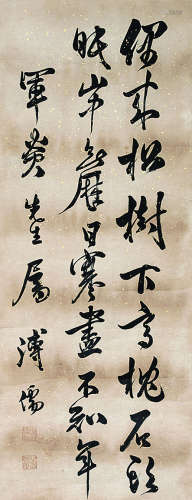 偶來松樹下高枕石頭
眠山中無曆日寒盡不知年
軍先生屬 溥儒